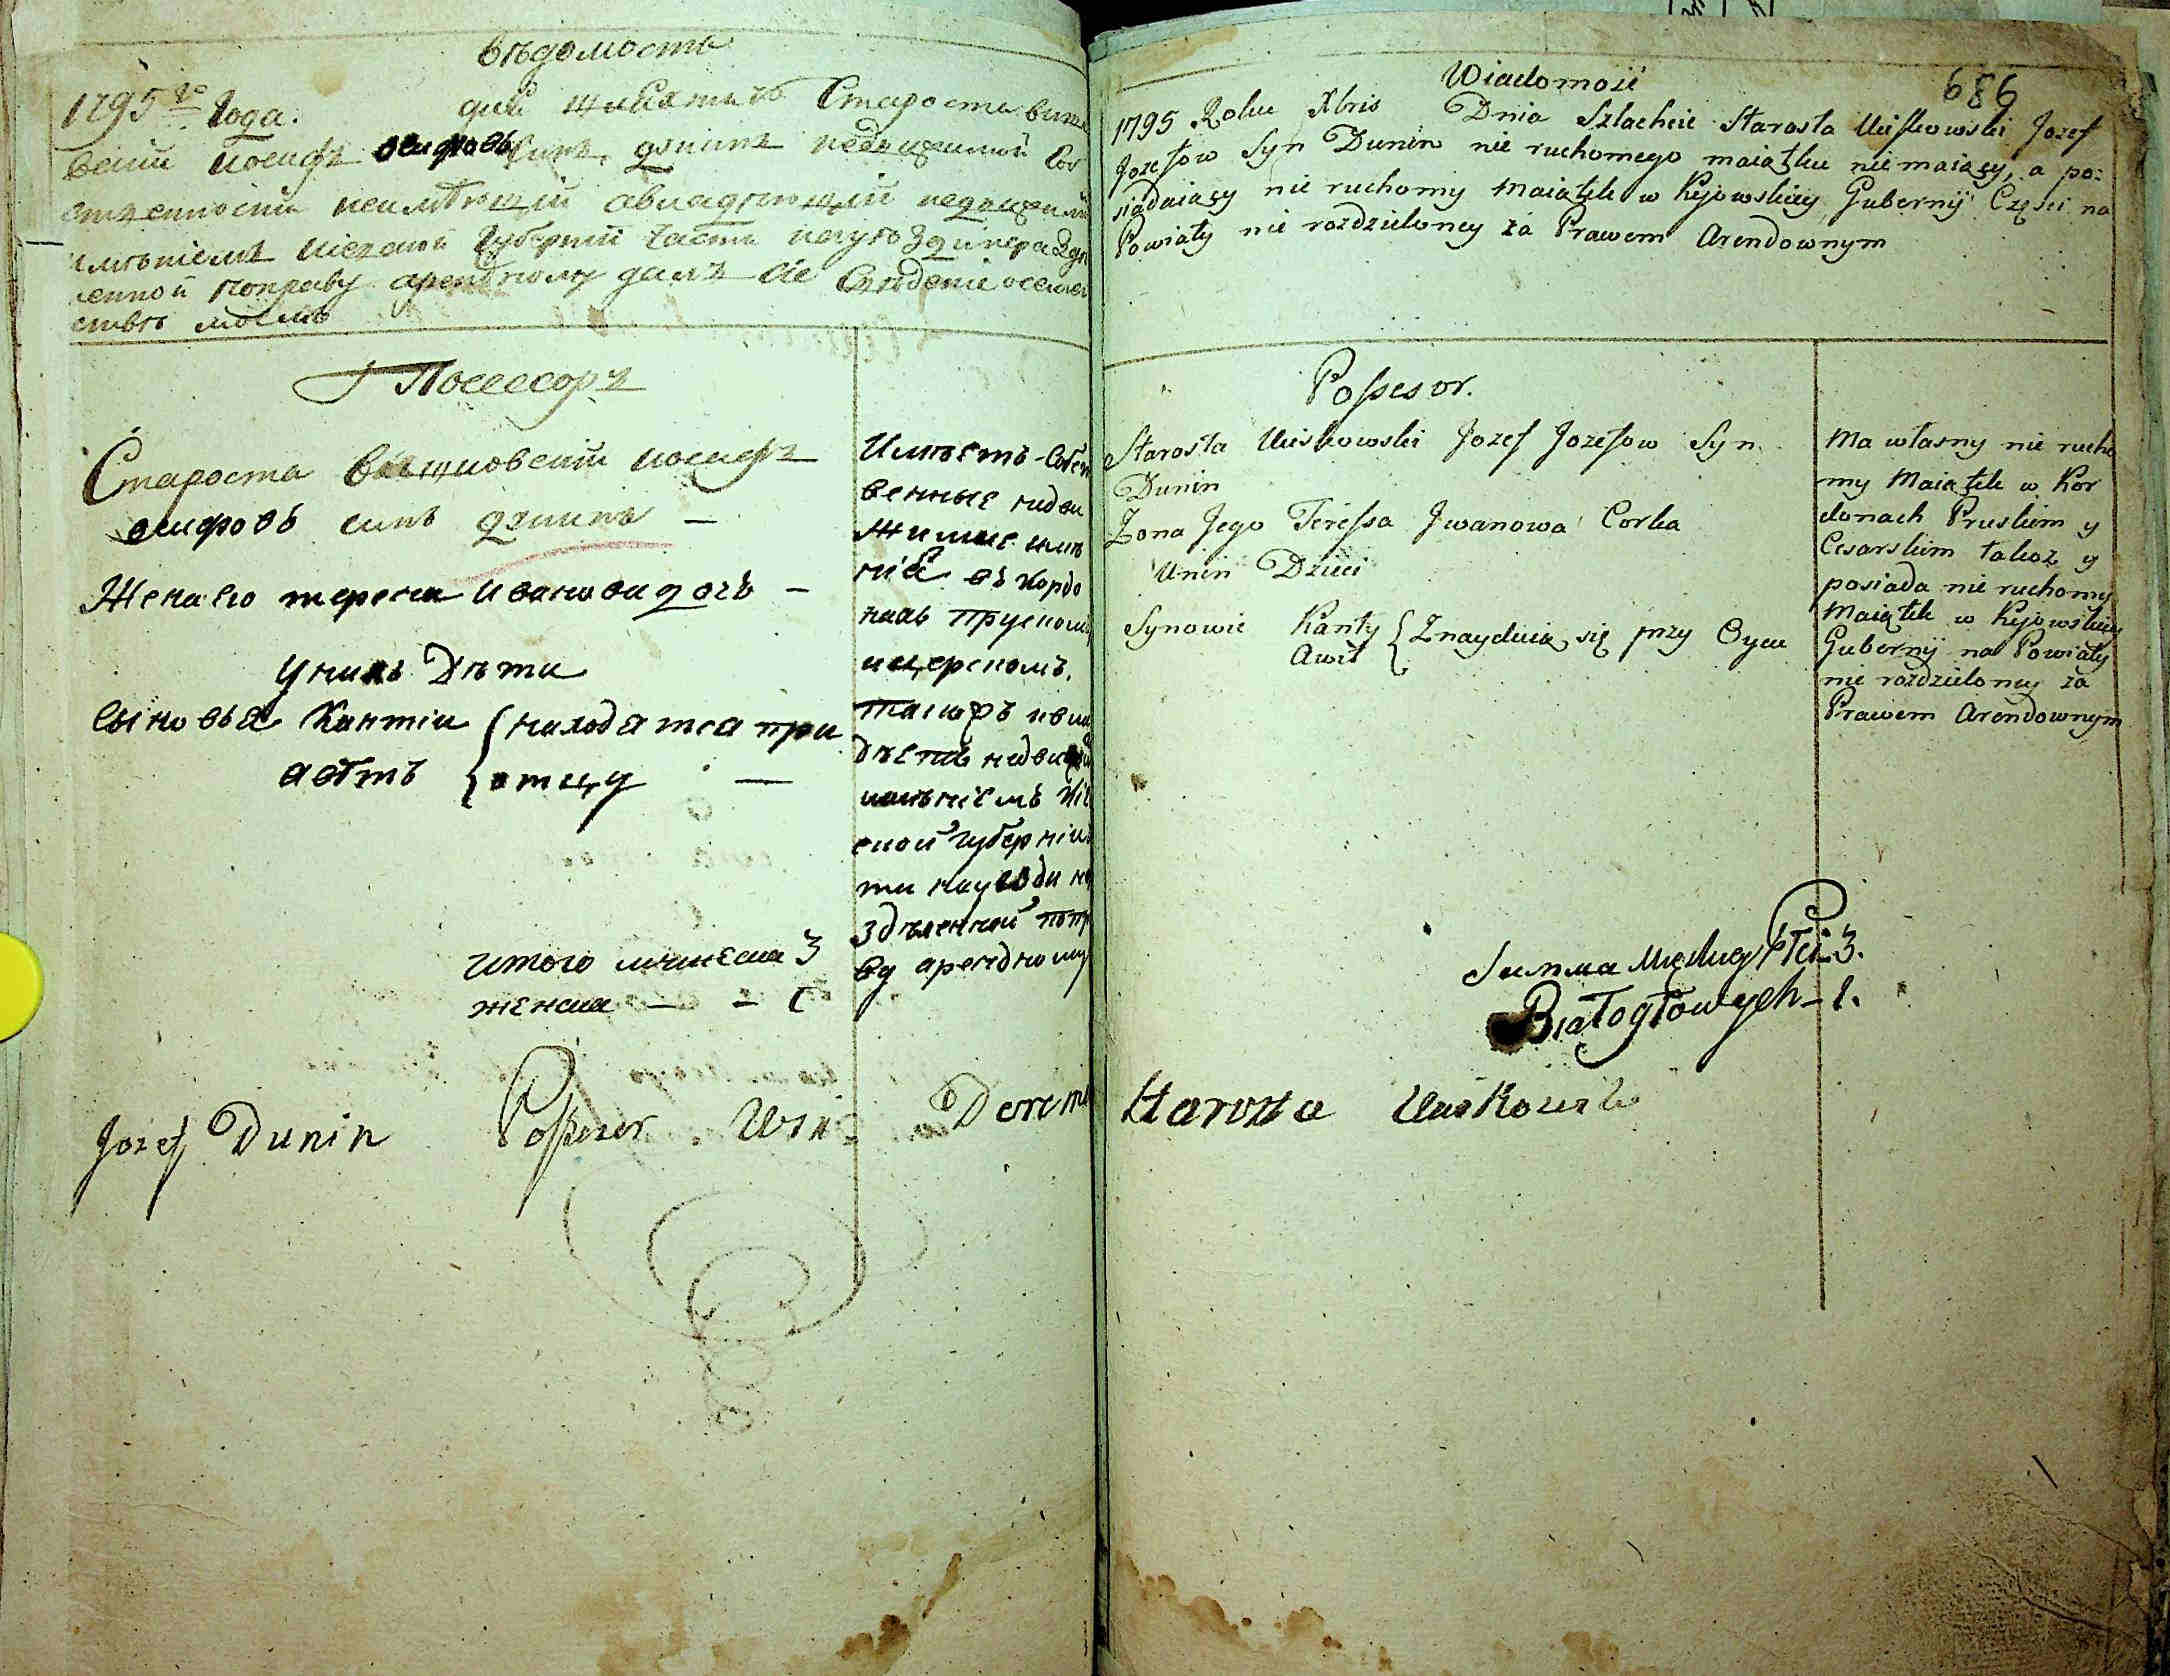 вѣдомость
1795го Года. дня шляхтичъ Староста
Іосифъ осифовъ сынъ дунинъ недвижимой
неимѣющій авладѣющій недвижимимъ
имѣніемъ кіевской Губерніи части
поправу арендному далъ Сіе Свѣденіе осемей
ствѣ моемъ
Посессоръ
Староста іосифъ
осифовъ синъ дунинъ —
Жена его тереса иванова дочъ —
унихъ Дѣти
сыновья Кантіи { находятся при
авѣтъ { отцу —
итого мужеска 3
женска — — 1
Имѣетъ собст
венные недви
жимие имѣ
нія въ кордо
нахъ прускомъ
ицерскомъ,
такожъ ивла
дѣетъ недвижи
имѣніемъ Кіе
ской губерніи
ти науезди
здѣленной попра
ву арендному
Jozef Dunin Possesor Wsi
Wiadomość
686
1795 Roku Xbris Dnia Szlachcic Starosta Uiskowski Jozef
Jozefow Syn Dunin nie ruchomego maiątku nie maiący, a po:
siadaiący nie ruchomy Maiątek w Kyjowskiey Gubernÿ Części na
Powiaty nie rozdzieloney za Prawem Arendownym
Possesor.
Starosta Uiskowski Jozef Jozefow Syn
Dunin
Żona Jego Teressa Jwanowa Corka
Unin Dzieci
Synowie Kanty { Znayduią się przy Oycu
Awit
Ma własny nie rucho
my Maiątek w Kor
donach Pruskim y
Cesarskim takoż y
posiada nie ruchomy
Maiątek w Kyjowskiey
Gubernÿ na Powiaty
nie rozdzieloney za
Prawem Arendownym
Summa Męskiey Płci 3.
Białogłowych – 1.
Starosta Uiskowski